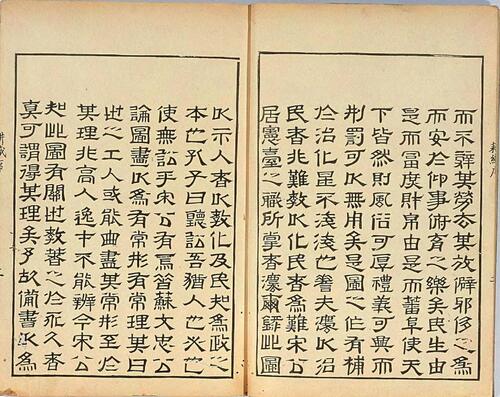 而不辭其勞亦其放僻邪侈之爲
而安於仰事俯育之樂矣民生由
是而富庶財帛由是而蕃阜使天
下皆然則風俗可厚禮義可興而
刑罰可以無用矣是圖之作有補
於治化 不淺淺也 夫灋以治
民者非難教以化民者爲難宋公
居憲臺之職所掌者灋爾 此圖
以示人者以教化及民知爲政之
本也孔子曰聽訟吾猶人也必也
使無訟乎宋公有焉昔蘇文忠公
論圖畫以爲有常形有常理其曰
世之工人或能曲盡其常形至於
其理非高人逸才不能辨今宋公
知此圖有關世教 之於永久者
真可謂得其理矣予故備書以爲